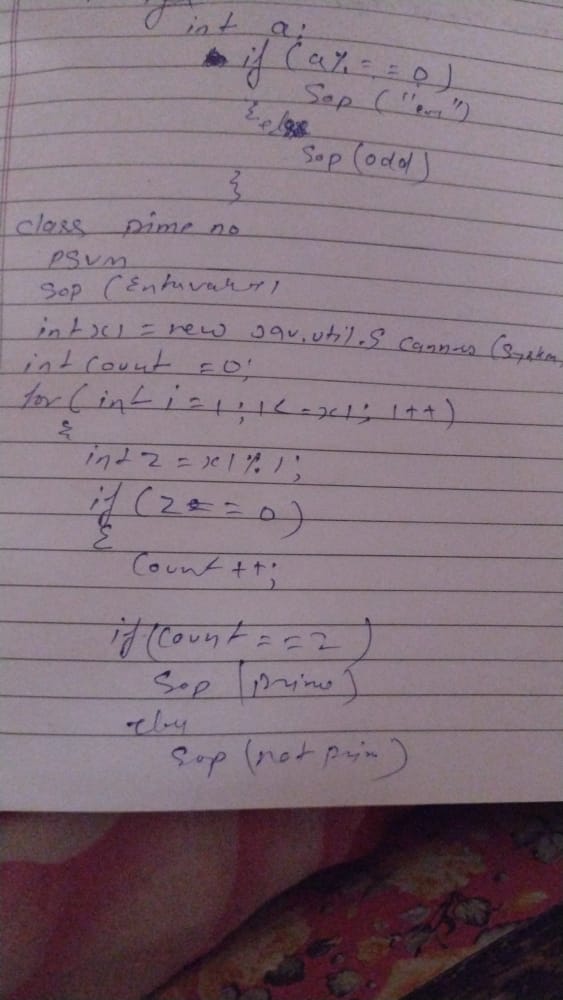 int a;
if (a% = = 0)
Sop ("even")
{ else
Sop (odd)
}
class pime no
PSVM
Sop (Enter
int x1 = new Jav.util.Scanner (System
int count = 0;
for ( int i = 1 ; i < = x1 ; i++)
{
int z = x1 % i ;
if (z = = 0)
{
Count ++;
if (Count = = 2 )
Sop (prime)
else
Sop (not prim)